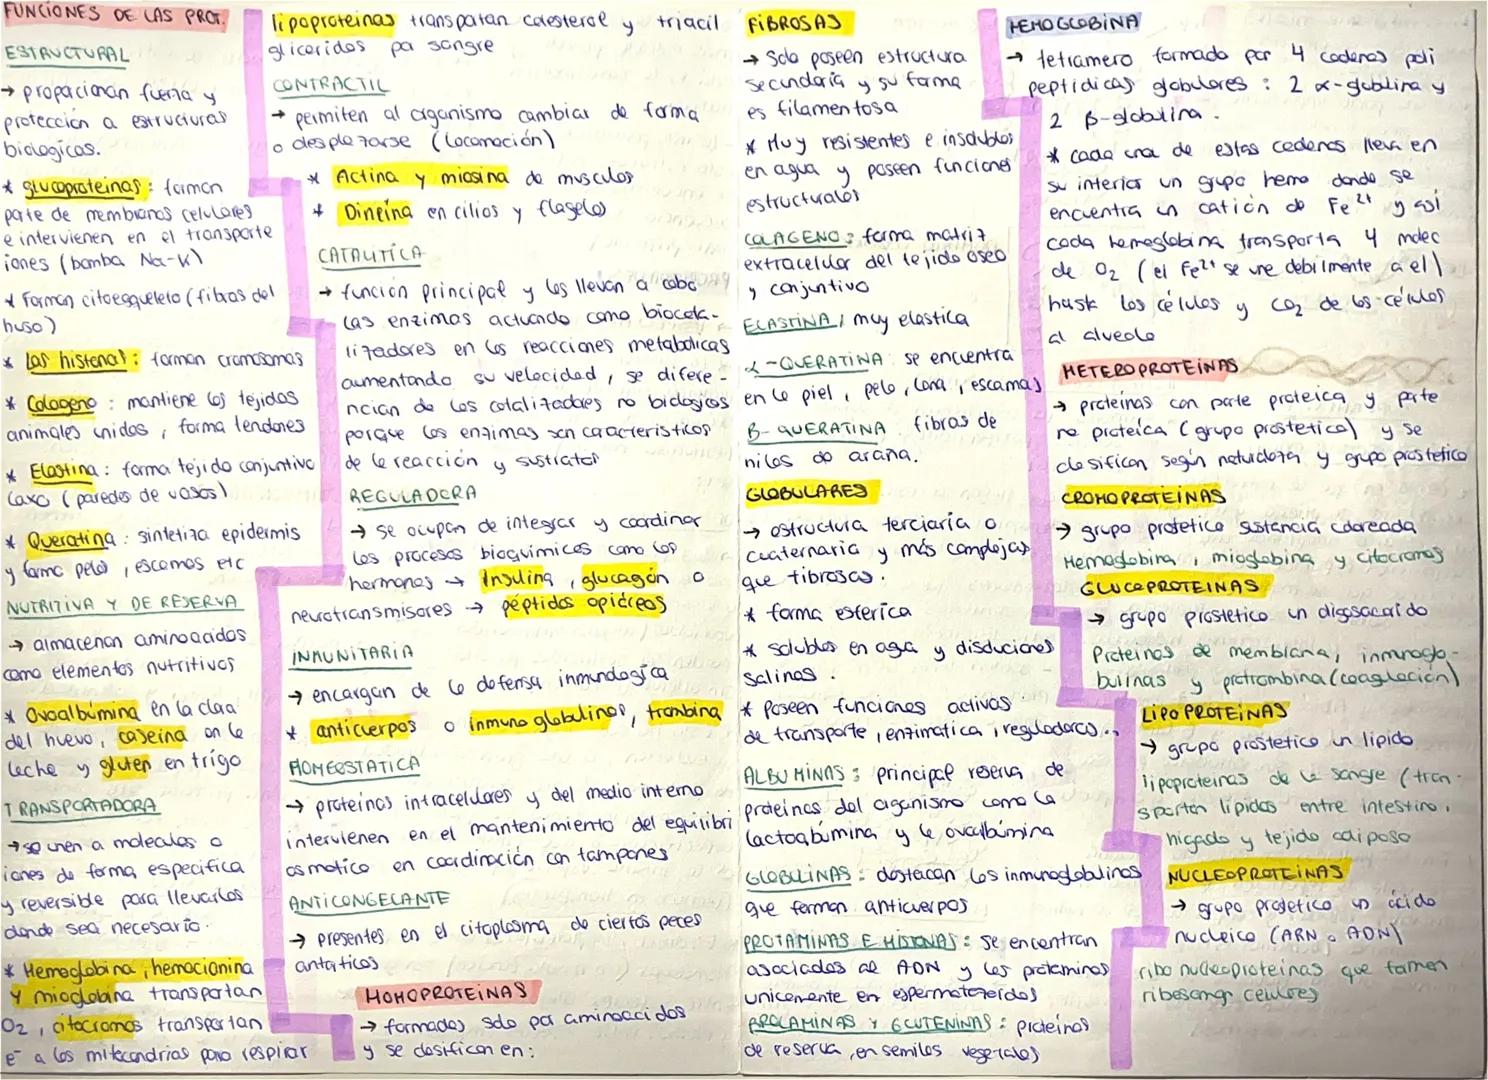 FUNCIONES DE LAS PROT.
ESTRUCTURAL
→ proporcionan fuerza y
protección a estructuras
biologicas.
* glucoproteinas: forman
parte de membranas celulares
e intervienen en el transporte
iones (bomba Na-K)
* Forman citoesqueleto (fibras del
huso)
* Las histonas: forman cromosomas
* Colageno: mantiene los tejidos
animales unidos, forma tendones
* Elastina: forma tejido conjuntivo
laxo (paredes de vasos)
* Queratina: sintetiza epidermis
y forma pelos, escamas etc
NUTRITIVA Y DE RESERVA
→ almacenan aminoacidos
como elementos nutritivos
* Ovoalbúmina en la clara
del huevo, caseina en la
leche y gluten en trigo
TRANSPORTADORA
→ se unen a moleculas o
iones de forma especifica
y reversible para llevarlos
donde sea necesario.
* Hemoglobina, hemocianina
y mioglobina transportan
O₂, citocromos transportan
e⁻ a las mitocondrias para respirar
lipoproteinas transportan colesterol y triacil
gliceridos por sangre
CONTRACTIL
→ permiten al organismo cambiar de forma
o desplazarse (locomoción)
* Actina y miosina de musculos
* Dineina en cilios y flagelos
CATALITICA
→ función principal y las llevan a cabo
las enzimas actuando como biocata-
lizadores en las reacciones metabolicas
aumentando su velocidad, se difere-
ncian de los catalizadores no biologicos
porque las enzimas son caracteristicos
de la reacción y sustrato
REGULADORA
→ se ocupan de integrar y coordinar
los procesos bioquimicos como las
hormonas → Insulina, glucagón o
neurotransmisores → péptidos opiáceos
INMUNITARIA
→ encargan de la defensa inmunologica
* anticuerpos o inmunoglobulinas, trombina
HOMEOSTATICA
→ proteinas intracelulares y del medio interno
intervienen en el mantenimiento del equilibri
osmotico en coordinación con tampones
ANTICONGELANTE
→ presentes en el citoplasma de ciertos peces
antarticos
HOMOPROTEINAS
→ formadas solo por aminoacidos
y se clasifican en:
FIBROSAS
→ Solo poseen estructura
secundaria y su forma
es filamentosa
* Muy resistentes e insolubles
en agua y poseen funciones
estructurales
COLAGENO: forma matriz
extracelular del tejido oseo
y conjuntivo
ELASTINA, muy elastica
α-QUERATINA: se encuentra
en la piel, pelo, lana, escamas
B-QUERATINA: fibras de
hilos de araña.
GLOBULARES
→ estructura terciaria o
cuaternaria y más complejas
que fibrosas.
* forma esferica
* solubles en agua y disoluciones
salinas.
* Poseen funciones activas
de transporte, enzimatica, reguladoras...
ALBUMINAS: principal reserva de
proteinas del organismo como la
lactoalbúmina y la ovoalbúmina
GLOBULINAS: destacan las inmunoglobulinas
que forman anticuerpos
PROTAMINAS E HISTONAS: se encuentran
asociadas al ADN y las protaminas
unicamente en espermatozoides
PROLAMINAS Y GLUTENINAS: proteinas
de reserva, en semillas vegetales
HEMOGLOBINA
→ tetramero formado por 4 cadenas poli
peptidicas globulares: 2 α-globulina y
2 β-globulina.
* cada una de estas cadenas lleva en
su interior un grupo hemo donde se
encuentra un catión de Fe²⁺ y asi
cada hemoglobina transporta 4 molec
de O₂ (el Fe²⁺ se une debilmente a el)
hasta las células y CO₂ de las células
al alveolo
HETEROPROTEINAS
→ proteinas con parte proteica y parte
no proteica (grupo prostetica) y se
clasifican según naturaleza y grupo prostetico
CROMOPROTEINAS
→ grupo prostetico sustancia coloreada
Hemoglobina, mioglobina y citocromos
GLUCOPROTEINAS
→ grupo prostetico un oligosacarido
Proteinas de membrana, inmunoglo-
bulinas y protrombina (coagulación)
LIPOPROTEINAS
→ grupo prostetico un lipido
lipoproteinas de la sangre (tran-
sportan lipidos entre intestino,
higado y tejido adiposo
NUCLEOPROTEINAS
→ grupo prostetico un ácido
nucleico (ARN o ADN)
ribonucleoproteinas que forman
ribosomas celulares